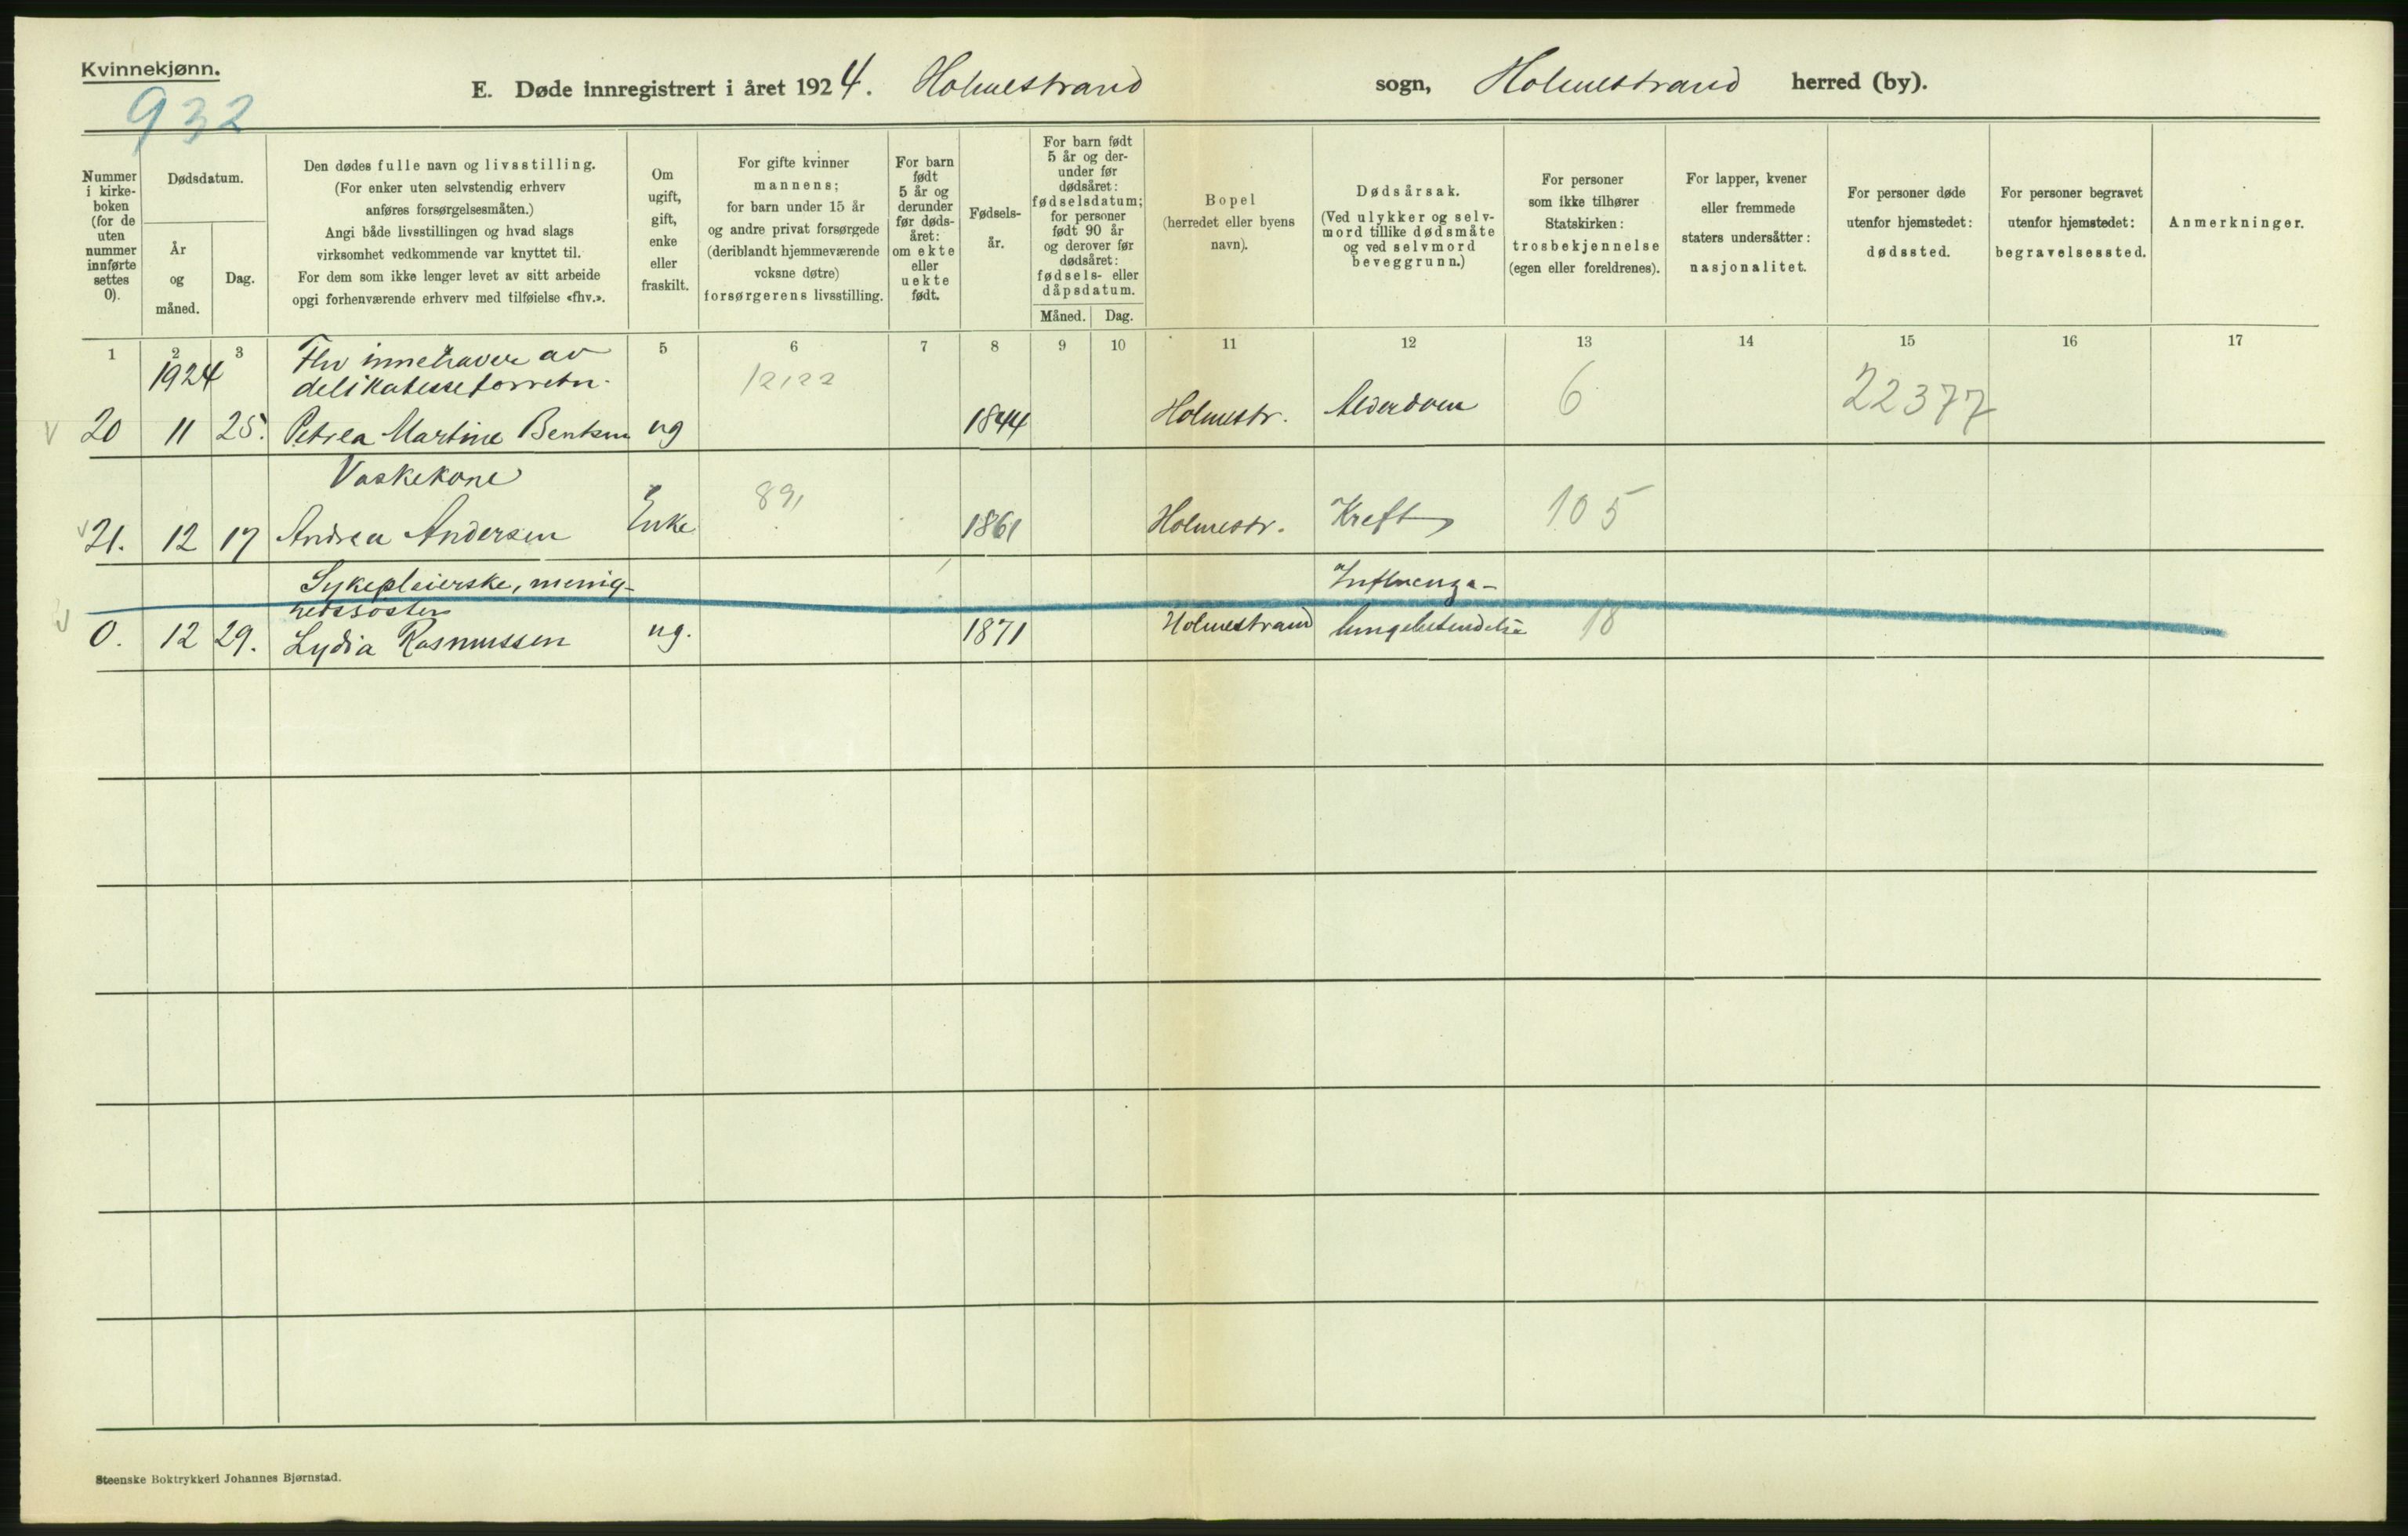 Kvinnekjønn.
932
E. Døde innregistrert i året 1924. Holmestrand sogn, Holmestrand herred (by).
Nummer
i kirke-
boken
(for de
uten
nummer
innførte
settes
0).
Dødsdatum.
År
og
måned.
Dag.
Den dødes fulle navn og livsstilling.
(For enker uten selvstendig erhverv
anføres forsørgelsesmåten.)
Angi både livsstillingen og hvad slags
virksomhet vedkommende var knyttet til.
For dem som ikke lenger levet av sitt arbeide
opgi forhenværende erhverv med tilføielse «fhv.».
Om
ugift,
gift,
enke
eller
fraskilt.
For gifte kvinner
mannens;
for barn under 15 år
og andre privat forsørgede
(deriblandt hjemmeværende
voksne døtre)
forsørgerens livsstilling.
For barn
født
5 år og
derunder
før døds-
året:
om ekte
eller
uekte
født.
Fødsels-
år.
For barn født
5 år og der-
under før
dødsåret:
fødselsdatum;
for personer
født 90 år
og derover før
dødsåret:
fødsels- eller
dåpsdatum.
Måned. Dag.
Bopel
(herredet eller byens
navn).
Dødsårsak.
(Ved ulykker og selv-
mord tillike dødsmåte
og ved selvmord
beveggrunn.)
For personer
som ikke tilhører
Statskirken:
trosbekjennelse
(egen eller foreldrenes).
For lapper, kvener
eller fremmede
staters undersåtter:
nasjonalitet.
For personer døde
utenfor hjemstedet:
dødssted.
For personer begravet
utenfor hjemstedet:
begravelsessted.
Anmerkninger.
1 2 3 5 6 7 8 9 10 11 12 13 14 15 16 17
1924 Fhv innehaver av
delikatesseforretn. 12122
V 20 11 25. Petrea Martine Bentsen ug 1844 Holmestr. Alderdom 6 22377
Vaskekone
v 21. 12 17 Andrea Andersen Enke 89, 1861 Holmestr. Kreft 105
Sykepleierske, menig- Influenza-
hetssøster
v 0. 12 29. Lydia Rasmussen ug. 1871 Holmestrand lungebetendelse 18
Steenske Boktrykkeri Johannes Bjørnstad.